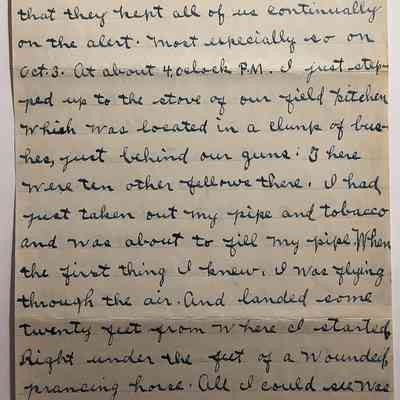 that they kept all of us continually
on the alert. Most especially so on
Oct. 3. At about 4, oclock P.M. I just step-
ped up to the stove of our field kitchen
which was located in a clump of bus-
hes, just behind our guns: There
were ten other fellows there. I had
just taken out my pipe and tobacco
and was about to fill my pipe. When
the first thing I knew, I was flying
through the air. And landed some
twenty feet from where I started
Right under the feet of a wounded,
prancing horse. All I could see was